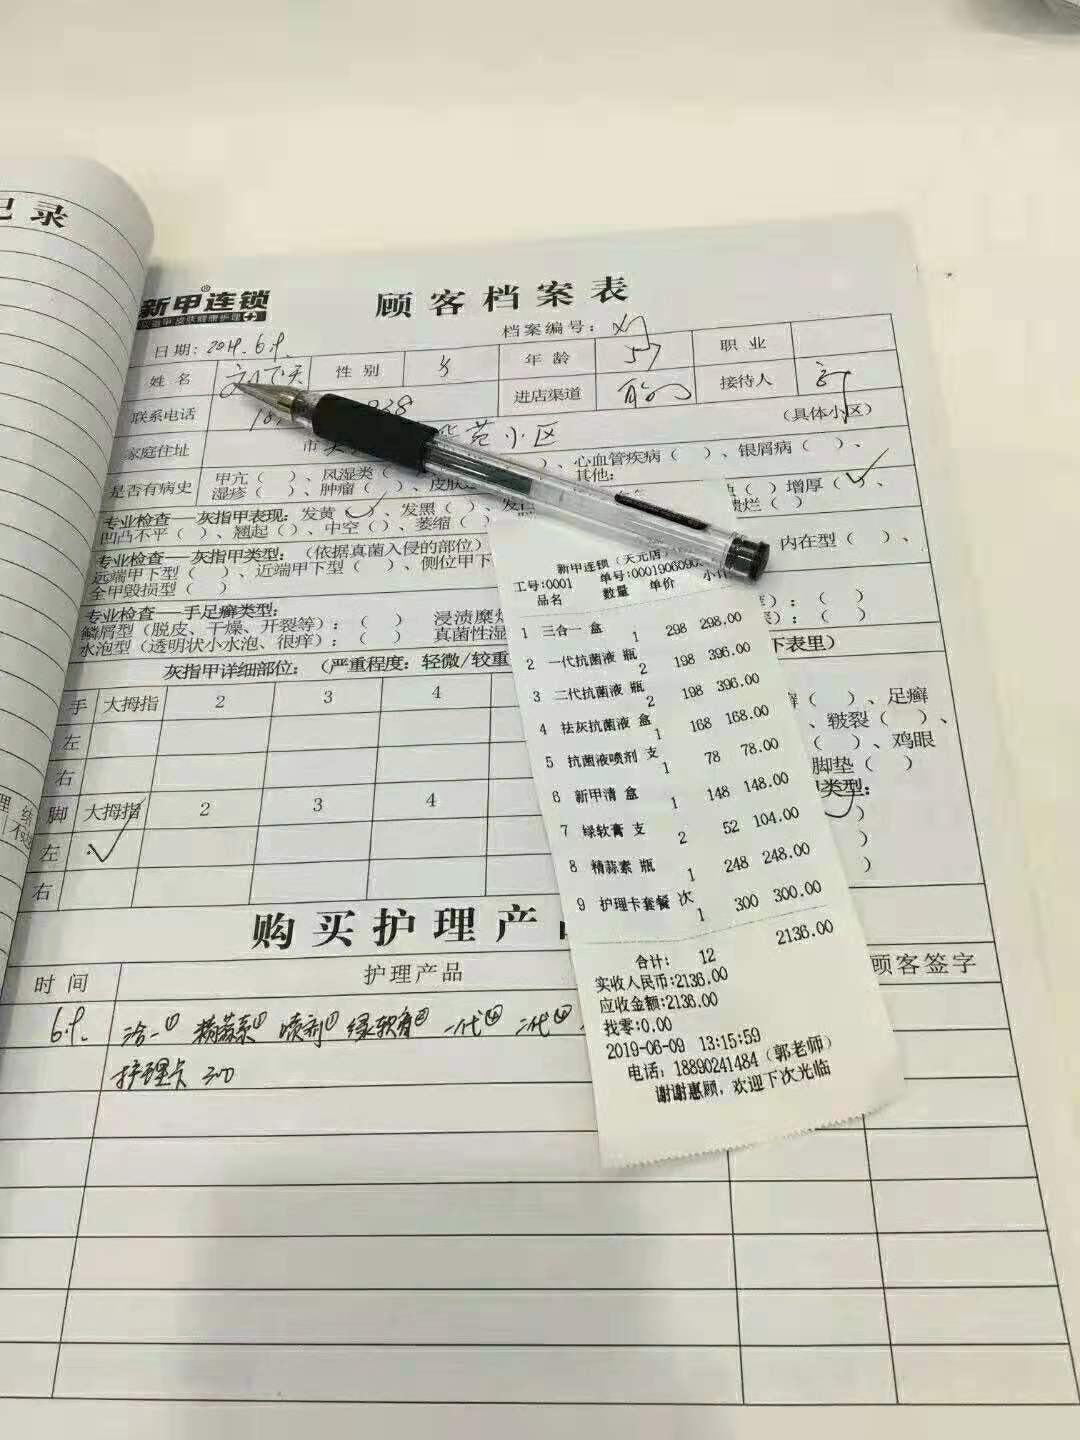 记录
新甲连锁
顾客档案表
档案编号:
日期: 2019.6.9.
姓名
性别
年龄 57
职业
联系电话
进店渠道
接待人
家庭住址
市
小区
(具体小区)
是否有病史
甲亢( )、风湿类(
)、心血管疾病( )、银屑病( )、
湿疹( )、肿瘤( )、皮肤过
其他:
专业检查——灰指甲表现: 发黄(✓)、发黑( )、
( ) 增厚(✓)、
凹凸不平( )、翘起( )、中空( )、萎缩( )
溃烂( )
专业检查——灰指甲类型: (依据真菌入侵的部位)
远端甲下型( )、近端甲下型( )、侧位甲下
内在型( )、
全甲毁损型( )
专业检查——手足癣类型:
鳞屑型(脱皮、干燥、开裂等): ( ) 浸渍糜烂
水泡型(透明状小水泡、很痒): ( ) 真菌性湿
灰指甲详细部位: (严重程度: 轻微/较重
下表里)
手 大拇指 2 3 4
左
右
脚 大拇指 2 3 4
左 ✓
右
)、足癣
、皲裂( )、
( )、鸡眼
脚垫( )
类型:
新甲连锁(天元店)
工号:0001 单号:000190609
品名 数量 单价 小计
1 三合一 盒 1 298 298.00
2 一代抗菌液 瓶 2 198 396.00
3 二代抗菌液 瓶 2 198 396.00
4 祛灰抗菌液 盒 1 168 168.00
5 抗菌液喷剂 支 1 78 78.00
6 新甲清 盒 1 148 148.00
7 绿软膏 支 2 52 104.00
8 精蒜素 瓶 1 248 248.00
9 护理卡套餐 次 1 300 300.00
合计: 12 2136.00
实收人民币:2136.00
应收金额:2136.00
找零:0.00
2019-06-09 13:15:59
电话: 18890241484(郭老师)
谢谢惠顾, 欢迎下次光临
购买护理产
时间
护理产品
顾客签字
6.9. 三合一① 精蒜素① 喷剂① 绿软膏② 一代 二代
护理卡 300